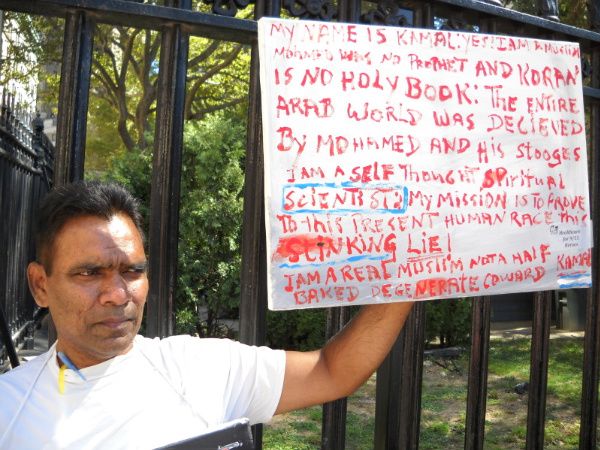 MY NAME IS KAMAL: YES! I AM A MUSLIM
MOHAMED WAS NO PROPHET AND KORAN
IS NO HOLY BOOK: THE ENTIRE
ARAB WORLD WAS DECIEVED
BY MOHOMED AND HIS STOOGES
I AM A SELF THOUGHT SPIRITUAL
SCIENTIST: MY MISSION IS TO PROVE
TO THIS PRESENT HUMAN RACE THIS
STINKING LIE!
I AM A REAL MUSLIM NOT A HALF
BAKED DEGENERATE COWARD KAMAL